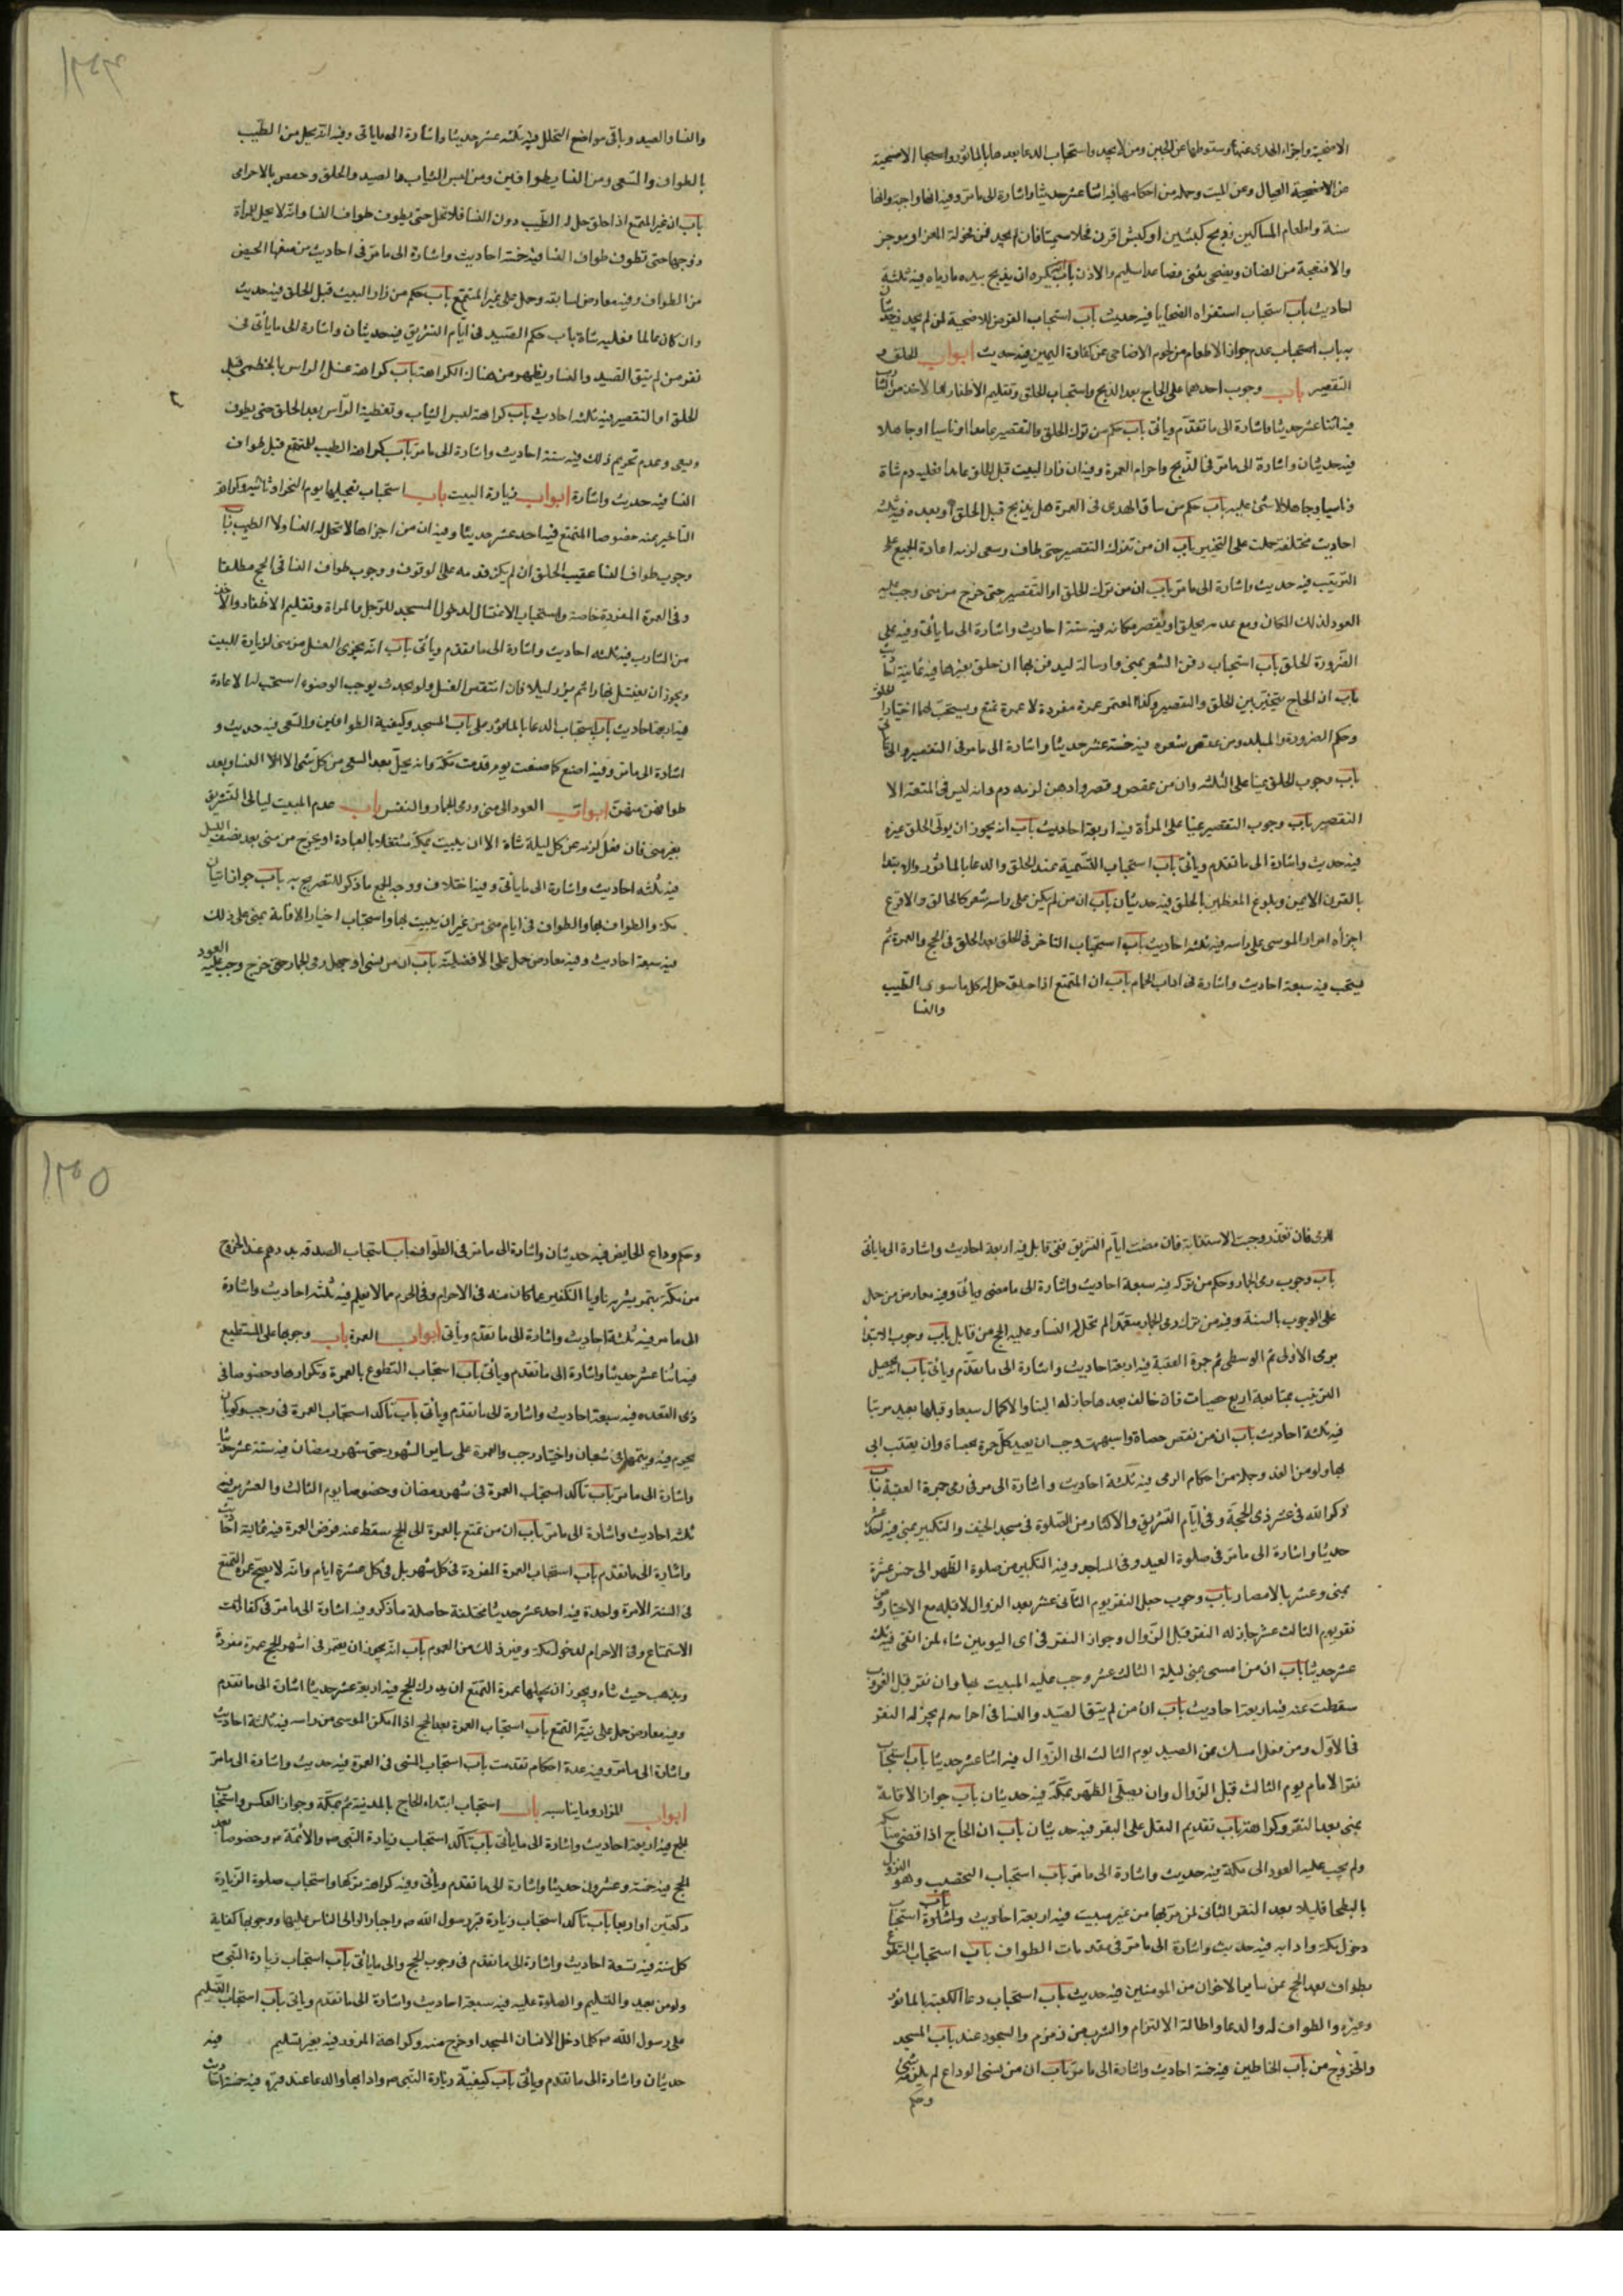 ١٣٤
الاضحية واجزاء الهدى عنها وسقوطها عن الجنين ومن لا يجد واستحباب الدعا بعدها بالماثور واستحباب الاضحية
عن الاضحية العيال وعن الميت وجملة من احكامها فيه اثنا عشر حديثا واشارة الى ما مر وفيه انها واجبة وانها
سنة واطعام المساكين وذبح كبشين او كبش اقرن فحلا سمينا فان لم يجد فمن فحولة المعز او موجوء
والاضحية من الضان
احاديث باب استحباب استفراه الضحايا فيه حديث باب استحباب القرض للاضحية لمن لم يجد فيه حديثان
باب استحباب عدم جواز الاطعام من لحوم الاضاحى عن كفارة اليمين فيه حديث ابواب الحلق و
التقصير باب وجوب احدهما على الحاج بعد الذبح واستحباب الحلق وتقليم الاظفار والاخذ من الشارب
فيه اثنا عشر حديثا واشارة الى ما تقدم ويأتى باب حكم من ترك الحلق والتقصير عامدا او ناسيا او جاهلا
فيه حديثان واشارة الى ما مر فى الذبح واحرام العمرة وفيه ان من زار البيت قبل الحلق عامدا فعليه دم شاة
وناسيا وجاهلا لا شئ عليه باب حكم من ساق الهدى فى العمرة هل يذبح قبل الحلق او بعده فيه ثلثة
احاديث مختلفة حملت على التخيير باب ان من ترك التقصير حتى طاف وسعى لزمه اعادة الجميع على
الترتيب فيه حديث واشارة الى ما مر باب ان من ترك الحلق او التقصير حتى خرج من منى وجب عليه
العود لذلك المكان ومع عدمه يحلق او يقصر مكانه فيه ستة احاديث واشارة الى ما يأتى وفيه على
الضرورة الحلق باب استحباب دفن الشعر بمنى وارساله ليدفن بها ان حلق بغيرها فيه ثمانية احاديث
باب ان الحاج يتخير بين الحلق والتقصير وكذا المعتمر عمرة مفردة لا عمرة تمتع ويستحب لهما اختيار الحلق
وحكم الصرورة والملبد ومن عقص شعره فيه خمسة عشر حديثا واشارة الى ما مر فى التقصير والى ما يأتى
باب وجوب الحلق عينا على الثلثة وان من عقص وقصر وادهن لزمه دم وانه ليس فى المتعة الا
التقصير باب وجوب التقصير عينا على المرأة فيه اربعة احاديث باب انه يجوز ان يولّى الحلق غيره
فيه حديث واشارة الى ما تقدم ويأتى باب استحباب التسمية عند الحلق والدعا بالماثور والابتدا
بالقرن الايمن وبلوغ العظمين بالحلق فيه حديثان باب ان من لم يكن على راسه شعر كالحالق والاقرع
اجزأه امرار الموسى على راسه فيه ثلثة احاديث باب استحباب التاخر فى الحلق بعد الحلق فى الحج والعمرة ثم
فيتحب فيه سبعة احاديث واشارة فى اداب الحمام باب ان المتمتع اذا حلق حل له كل ما سوى الطيب
والنسا
والنسا والصيد وباقى مواضع التحلل فيه ثلثة عشر حديثا واشارة الى ما ياتى وفيه انه يحل من الطيب
بالطواف والسعى ومن النسا بطوافين ومن لبس الثياب والصيد والحلق وخص بالاحرامى
باب ان غير المتمتع اذا حلق حل له الطيب دون النسا فلا تحل حتى يطوف طواف النسا وانه لا يحل للمرأة
زوجها حتى تطوف طواف النسا فيه خمسة احاديث واشارة الى ما مر فى احاديث من منعها الحيض
من الطواف وفيه معارض لسابقه وحمل على غير المتمتع باب حكم من زار البيت قبل الحلق فيه حديث
وان كان عالما فعليه شاة باب حكم الصيد فى ايام التشريق فيه حديثان واشارة الى ما يأتى فى
نفر من لم يتق الصيد والنسا ويظهر من هناك الكراهة باب كراهة غسل الراس بالخطمى قبل
الحلق او التقصير فيه ثلثة احاديث باب كراهة لبس الثياب وتغطية الرأس بعد الحلق حتى يطوف
ويسعى وعدم تحريم ذلك فيه ستة احاديث واشارة الى ما مر باب كراهة الطيب للمتمتع قبل طواف
النسا فيه حديث واشارة ابواب زيارة البيت باب استحباب تعجيلها يوم النحر او ثانيه وكراهة
التاخير عنه خصوصا المتمتع فيه احد عشر حديثا وفيه ان من اجزاها لا تحل له النسا ولا الطيب باب
وجوب طواف النسا عقيب الحلق ان لم يكن قدمه على الوقوف ووجوب طواف النسا فى الحج مطلقا
وفى العمرة المفردة خاصة واستحباب الاغتسال لدخول المسجد للرجل والمراة وتقليم الاظفار والاخذ
من الشارب فيه ثلثة احاديث واشارة الى ما تقدم ويأتى باب انه يجزى الغسل من منى لزيارة البيت
ويجوز ان يغتسل نهارا ثم يزور ليلا فان انتقض الغسل ولو بحدث يوجب الوضوء استحب له الاعادة
فيه اربعة احاديث باب استحباب الدعا بالماثور على باب المسجد وكيفية الطوافين والسعى فيه حديث و
اشارة الى ما مر وفيه اصنع كما صنعت يوم قدمت مكة وانه يحلّ بعد السعى من كل شئ الا النسا وبعد
طوافهن منهن ابواب العود الى منى ورمى الجمار والنفس باب عدم المبيت ليالى التشريق
بغير منى فان فعل لزمه عن كل ليلة شاة الا ان يبيت بمكة مشتغلا بالعبادة او يخرج من منى بعد نصف الليل
فيه ثلثة احاديث واشارة الى ما يأتى وفيها اختلاف ووجه الجمع ما ذكر للتصريح به باب جواز اتيان
مكة والطواف بها والطواف فى ايام منى من غير ان يبيت بها واستحباب اختيار الاقامة بمنى على ذلك
فيه سبعة احاديث وفيه معارض حمل على الافضلية باب ان من نسى او جهل رمى الجمار حتى خرج وجب عليه العود
١٣٥
للرمى فان تعذر وجبت الاستنابة فان مضت ايام التشريق فمن قابل فيه اربعة احاديث واشارة الى ما ياتى
باب وجوب رمى الجمار وحكم من تركه فيه سبعة احاديث واشارة الى ما مضى ويأتى وفيه معارض من حمل
على الوجوب بالسنة وفيه من ترك رمى الجمار متعمدا لم تحل له النسا وعليه الحج من قابل باب وجوب الابتدا
برمى الاولى ثم الوسطى ثم جمرة العقبة فيه اربعة احاديث واشارة الى ما تقدم ويأتى باب انه يحصل
الترتيب بمتابعة اربع حصيات فان خالف بعدها جاز له البنا والاكمال سبعا وقبلها يعيد مرتبا
فيه ثلثة احاديث باب ان من نقص حصاة واشتبهت وجب ان يعيد كل جمرة بحصاة وان
بها ولو من الغد وجملة من احكام الرمى فيه ثلثة احاديث واشارة الى مر فى رمى جمرة العقبة باب
ذكر الله فى عشر ذى الحجة وفى ايام التشريق والاكثار من الصلوة فى مسجد الخيف والتكبير بمنى فيه احد عشر
حديثا واشارة الى ما مر فى صلوة العيد وفى المساجد وفيه التكبير من صلوة الظهر الى خمس عشرة
بمنى وعشر بالامصار باب وجوب جعل النفر يوم الثانى عشر بعد الزوال لا قبله مع الاختيار ومن
نفر يوم الثالث عشر جاز له النفر قبل الزوال وجواز النفر فى اى اليومين شاء لمن اتقى فيه ثلثة
عشر حديثا باب ان من امسى بمنى ليلة الثالث عشر وجب عليه المبيت بها وان نفر قبل الغروب
سقطت عنه فيه اربعة احاديث باب ان من لم يتق الصيد والنسا فى احرامه لم يجز له النفر
فى الاول ومن فعل امسك عن الصيد يوم الثالث الى الزوال فيه اثنا عشر حديثا باب استحباب
نفر الامام يوم الثالث قبل الزوال وان يصلى الظهر بمكة فيه حديثان باب جواز الاقامة
بمنى بعد النفر وكراهة باب تقديم الثقل على النفر فيه حديثان باب ان الحاج اذا قضى مناسكه
ولم يجب عليه العود الى مكة فيه حديث واشارة الى ما مر باب استحباب التحصيب وهو النزول
بالبطحا قليلا بعد النفر الثانى لمن مر بها من غير مبيت فيه اربعة احاديث واشارة باب استحباب
دخول مكة وادابه فيه حديث واشارة الى ما مر فى مقدمات الطواف باب استحباب التطوع
بطواف بعد الحج عن سائر الاخوان من المومنين فيه حديث باب استحباب دعا الكعبة بالماثور
وغيره والطواف له والدعا واطالة الالتزام والشرب من زمزم والسجود عند باب المسجد
والخروج من باب الحناطين فيه خمسة احاديث واشارة الى ما مر باب ان من نسى الوداع لم يلزمه شئ
وحكم
وحكم وداع الحايض فيه حديثان واشارة الى ما مر فى الطواف باب استحباب الصدقة بدرهم عند الخروج
من مكة بتمر يشتريه ناويا التكفير عما كان منه فى الاحرام وفى الحرم مما لا يعلم فيه ثلثة احاديث واشارة
الى ما مر فيه ثلثة احاديث واشارة الى ما تقدم ويأتى ابواب العمرة باب وجوبها على المستطيع
فيه اثنا عشر حديثا واشارة الى ما تقدم ويأتى باب استحباب التطوع بالعمرة وتكرارها وخصوصا فى
ذى القعدة فيه سبعة احاديث واشارة الى ما تقدم ويأتى باب تاكد استحباب العمرة فى رجب وكو بان
يحرم فيه ويتمها فى شعبان واختيار رجب والعمرة على ساير الشهور حتى شهر رمضان فيه ستة عشر حديثا
واشارة الى ما مر باب تاكد استحباب العمرة فى شهر رمضان وخصوصا يوم الثالث والعشرين فيه
ثلثة احاديث واشارة الى ما مر باب ان من تمتع بالعمرة الى الحج سقط عنه فرض العمرة فيه ثمانية احاديث
واشارة الى ما تقدم باب استحباب العمرة المفردة فى كل شهر بل فى كل عشرة ايام وانه لا يصح عمرة التمتع
فى السنة الا مرة واحدة فيه احد عشر حديثا مختلفة حاصله ما ذكر وفيه اشارة الى ما مر فى كفارات
الاستمتاع وفى الاحرام لدخول مكة وغير ذلك من العموم باب انه يجوز ان يعتمر فى اشهر الحج عمرة مفردة
ويذهب حيث شاء ويجوز ان يجعلها عمرة التمتع ان ادرك الحج فيه اربعة عشر حديثا اشارة الى ما تقدم
وفيه معارض حمل على نية التمتع باب استحباب العمرة بعد الحج اذا امكن الموسى من راسه فيه ثلثة احاديث
واشارة الى ما مر وفيه عدة احكام تقدمت باب استحباب المشى فى العمرة فيه حديث واشارة الى ما مر
ابواب المزار وما يناسبه باب استحباب ابتداء الحاج بالمدينة ثم بمكة وجواز العكس واستحباب
الحج فيه اربعة احاديث واشارة الى ما يأتى باب تاكد استحباب زيارة النبى ص والائمة ع وخصوصا بعد
الحج فيه خمسة وعشرون حديثا واشارة الى ما تقدم ويأتى وفيه كراهة تركها واستحباب صلوة الزيارة
ركعتين او اربعا باب تاكد استحباب زيارة قبر رسول الله ص واجبار الوالى الناس عليها ووجوبها كفاية
كل سنة فيه تسعة احاديث واشارة الى ما تقدم فى وجوب الحج والى ما ياتى باب استحباب زيارة النبى ص
ولو من بعيد والتسليم والصلوة عليه فيه سبعة احاديث واشارة الى ما تقدم وياتى باب استحباب التسليم
على رسول الله ص كلما دخل الانسان المسجد او خرج منه وكراهة المرور فيه بغير تسليم فيه
حديثان واشارة الى ما تقدم ويأتى باب كيفية زيارة النبى ص وادابها والدعا عند قبره فيه خمسة احاديث